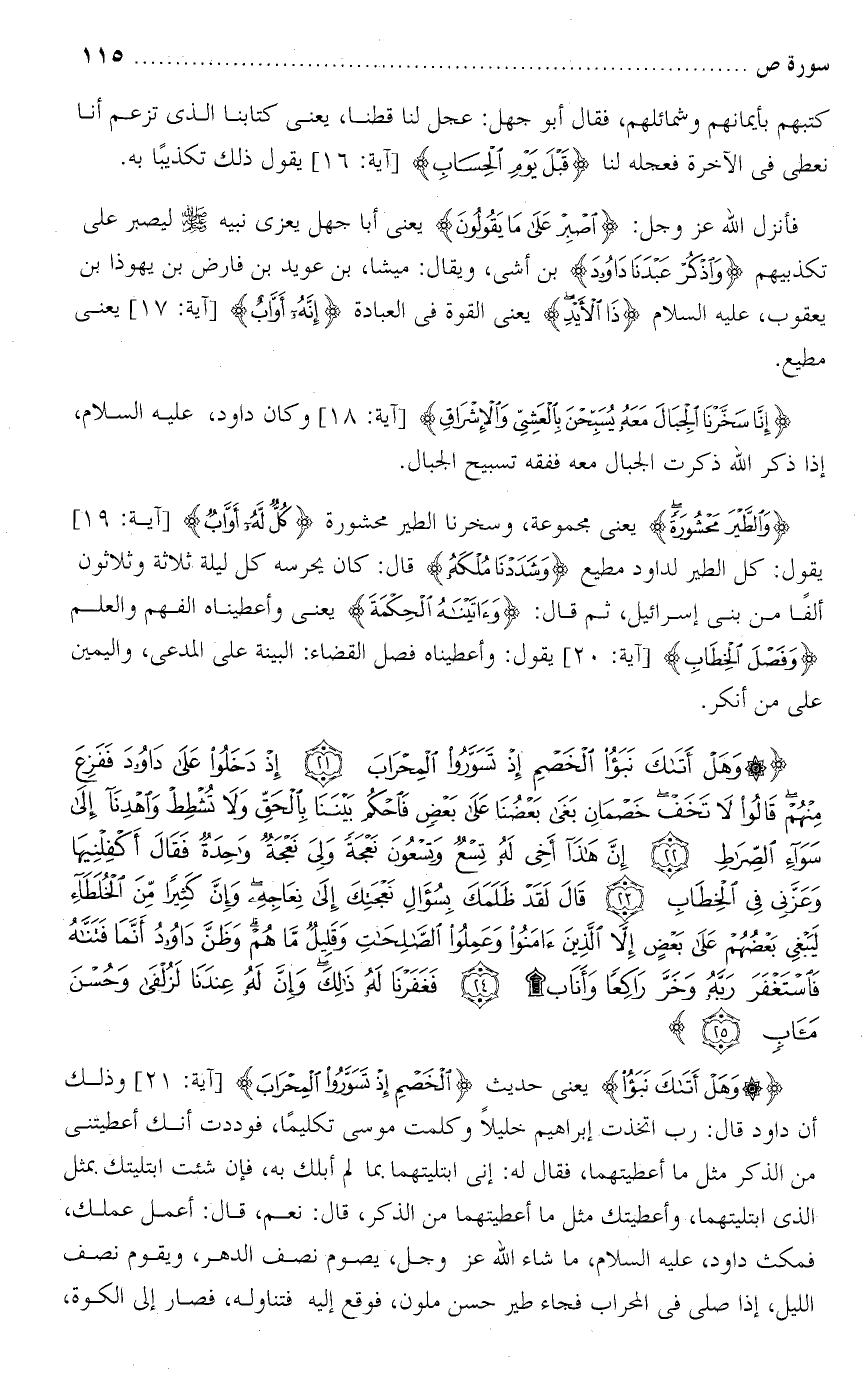 سورة ص ........................................................................ ١١٥
كتبهم بأيمانهم وشمائلهم، فقال أبو جهل: عجل لنا قطنـا، يعنـى كتابنـا الـذى تزعـم أنـا
نعطى فى الآخرة فعجله لنا ﴿قَبْلَ يَوْمِ ٱلْحِسَابِ﴾ [آية: ١٦] يقول ذلك تكذيبًا به.
فأنزل الله عز وجل: ﴿ٱصْبِرْ عَلَىٰ مَا يَقُولُونَ﴾ يعنى أبا جهل يعزى نبيه ﷺ ليصبر على
تكذبيهم ﴿وَٱذْكُرْ عَبْدَنَا دَاوُۥدَ﴾ بن أشى، ويقال: ميشا، بن عويد بن فارض بن يهوذا بن
يعقوب، عليه السلام ﴿ذَا ٱلْأَيْدِ ۖ﴾ يعنى القوة فى العبادة ﴿إِنَّهُۥٓ أَوَّابٌ﴾ [آية: ١٧] يعنـى
مطيع.
﴿إِنَّا سَخَّرْنَا ٱلْجِبَالَ مَعَهُۥ يُسَبِّحْنَ بِٱلْعَشِىِّ وَٱلْإِشْرَاقِ﴾ [آية: ١٨] وكان داود، عليـه السـلام،
إذا ذكر الله ذكرت الجبال معه ففقه تسبيح الجبال.
﴿وَٱلطَّيْرَ مَحْشُورَةً ۖ﴾ يعنى مجموعة، وسخرنا الطير محشورة ﴿كُلٌّ لَّهُۥٓ أَوَّابٌ﴾ [آيـة: ١٩]
يقول: كل الطير لداود مطيع ﴿وَشَدَدْنَا مُلْكَهُۥ﴾ قال: كان يحرسه كل ليلة ثلاثة وثلاثون
ألفًـا مـن بنى إسـرائيل، ثـم قـال: ﴿وَءَاتَيْنَٰهُ ٱلْحِكْمَةَ﴾ يعنـى وأعطينـاه الفـهم والعلـم
﴿وَفَصْلَ ٱلْخِطَابِ﴾ [آية: ٢٠] يقول: وأعطيناه فصل القضاء: البينة على المدعى، واليمين
على من أنكر.
﴿۞ وَهَلْ أَتَىٰكَ نَبَؤُا۟ ٱلْخَصْمِ إِذْ تَسَوَّرُوا۟ ٱلْمِحْرَابَ ٢١ إِذْ دَخَلُوا۟ عَلَىٰ دَاوُۥدَ فَفَزِعَ
مِنْهُمْ ۖ قَالُوا۟ لَا تَخَفْ ۖ خَصْمَانِ بَغَىٰ بَعْضُنَا عَلَىٰ بَعْضٍ فَٱحْكُم بَيْنَنَا بِٱلْحَقِّ وَلَا تُشْطِطْ وَٱهْدِنَآ إِلَىٰ
سَوَآءِ ٱلصِّرَٰطِ ٢٢ إِنَّ هَٰذَآ أَخِى لَهُۥ تِسْعٌ وَتِسْعُونَ نَعْجَةً وَلِىَ نَعْجَةٌ وَٰحِدَةٌ فَقَالَ أَكْفِلْنِيهَا
وَعَزَّنِى فِى ٱلْخِطَابِ ٢٣ قَالَ لَقَدْ ظَلَمَكَ بِسُؤَالِ نَعْجَتِكَ إِلَىٰ نِعَاجِهِۦ ۖ وَإِنَّ كَثِيرًا مِّنَ ٱلْخُلَطَآءِ
لَيَبْغِى بَعْضُهُمْ عَلَىٰ بَعْضٍ إِلَّا ٱلَّذِينَ ءَامَنُوا۟ وَعَمِلُوا۟ ٱلصَّٰلِحَٰتِ وَقَلِيلٌ مَّا هُمْ ۗ وَظَنَّ دَاوُۥدُ أَنَّمَا فَتَنَّٰهُ
فَٱسْتَغْفَرَ رَبَّهُۥ وَخَرَّ رَاكِعًا وَأَنَابَ ۩ ٢٤ فَغَفَرْنَا لَهُۥ ذَٰلِكَ ۖ وَإِنَّ لَهُۥ عِندَنَا لَزُلْفَىٰ وَحُسْنَ
مَـَٔابٍ ٢٥ ﴾
﴿۞ وَهَلْ أَتَىٰكَ نَبَؤُا۟﴾ يعنى حديث ﴿ٱلْخَصْمِ إِذْ تَسَوَّرُوا۟ ٱلْمِحْرَابَ﴾ [آية: ٢١] وذلـك
أن داود قال: رب اتخذت إبراهيم خليلاً وكلمت موسى تكليمًا، فوددت أنـك أعطيتنـى
من الذكر مثل ما أعطيتهما، فقال له: إنى ابتليتهما بما لم أبلك به، فإن شئت ابتليتك بمثل
الذى ابتليتهما، وأعطيتك مثل ما أعطيتهما من الذكر، قال: نعـم، قـال: أعمـل عملـك،
فمكث داود، عليه السلام، ما شاء الله عز وجـل، يصـوم نصـف الدهـر، ويقـوم نصـف
الليل، إذا صلى فى المحراب فجاء طير حسن ملون، فوقع إليه فتناولـه، فصـار إلى الكـوة،